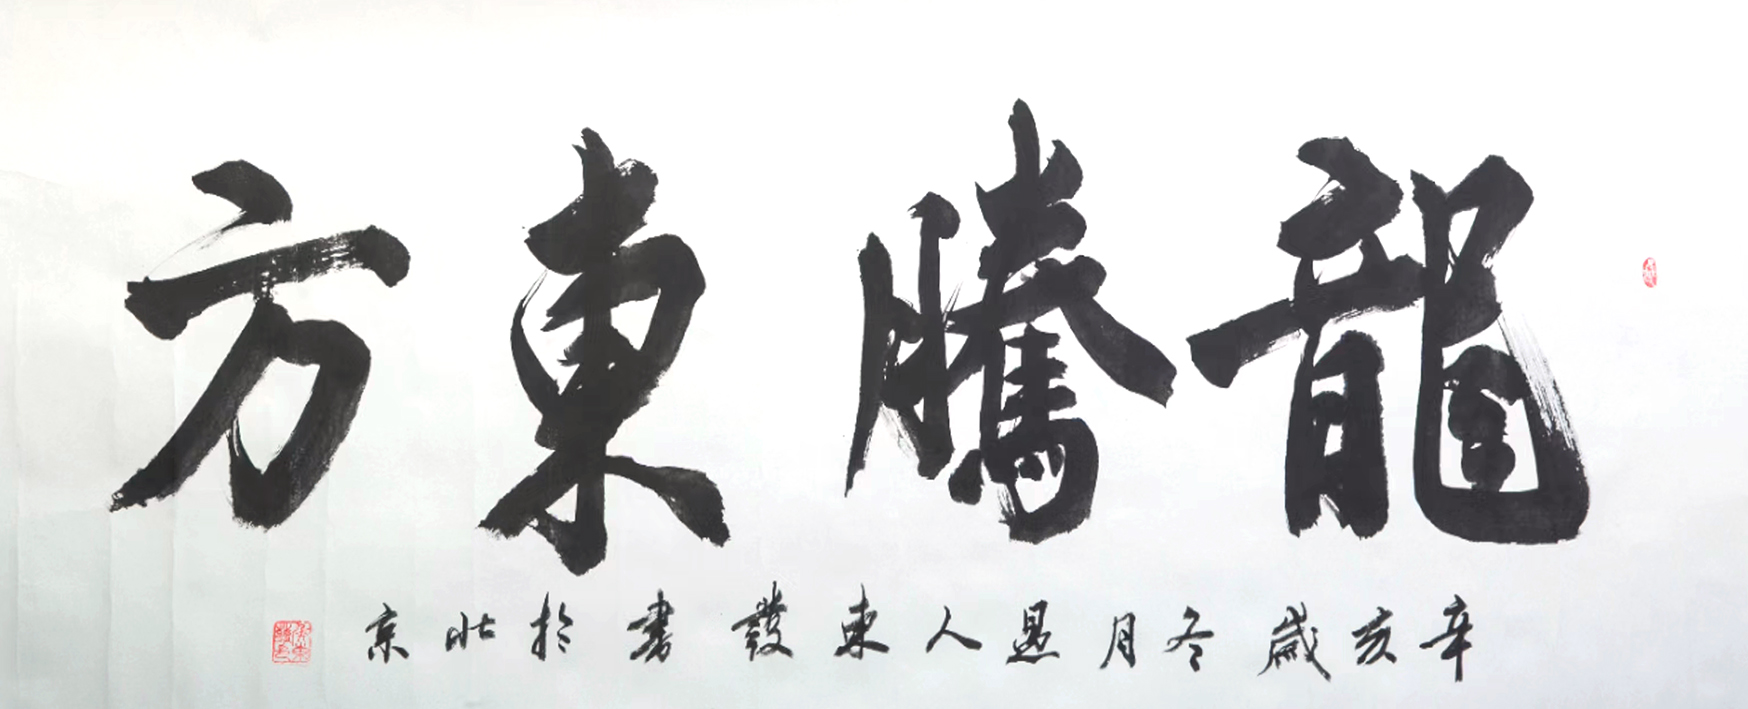 龍騰東方
辛亥歲冬月愚人東發書於北京